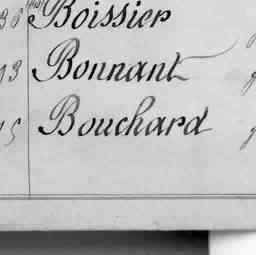 36 Boissier
93 Bonnant
15 Bouchard